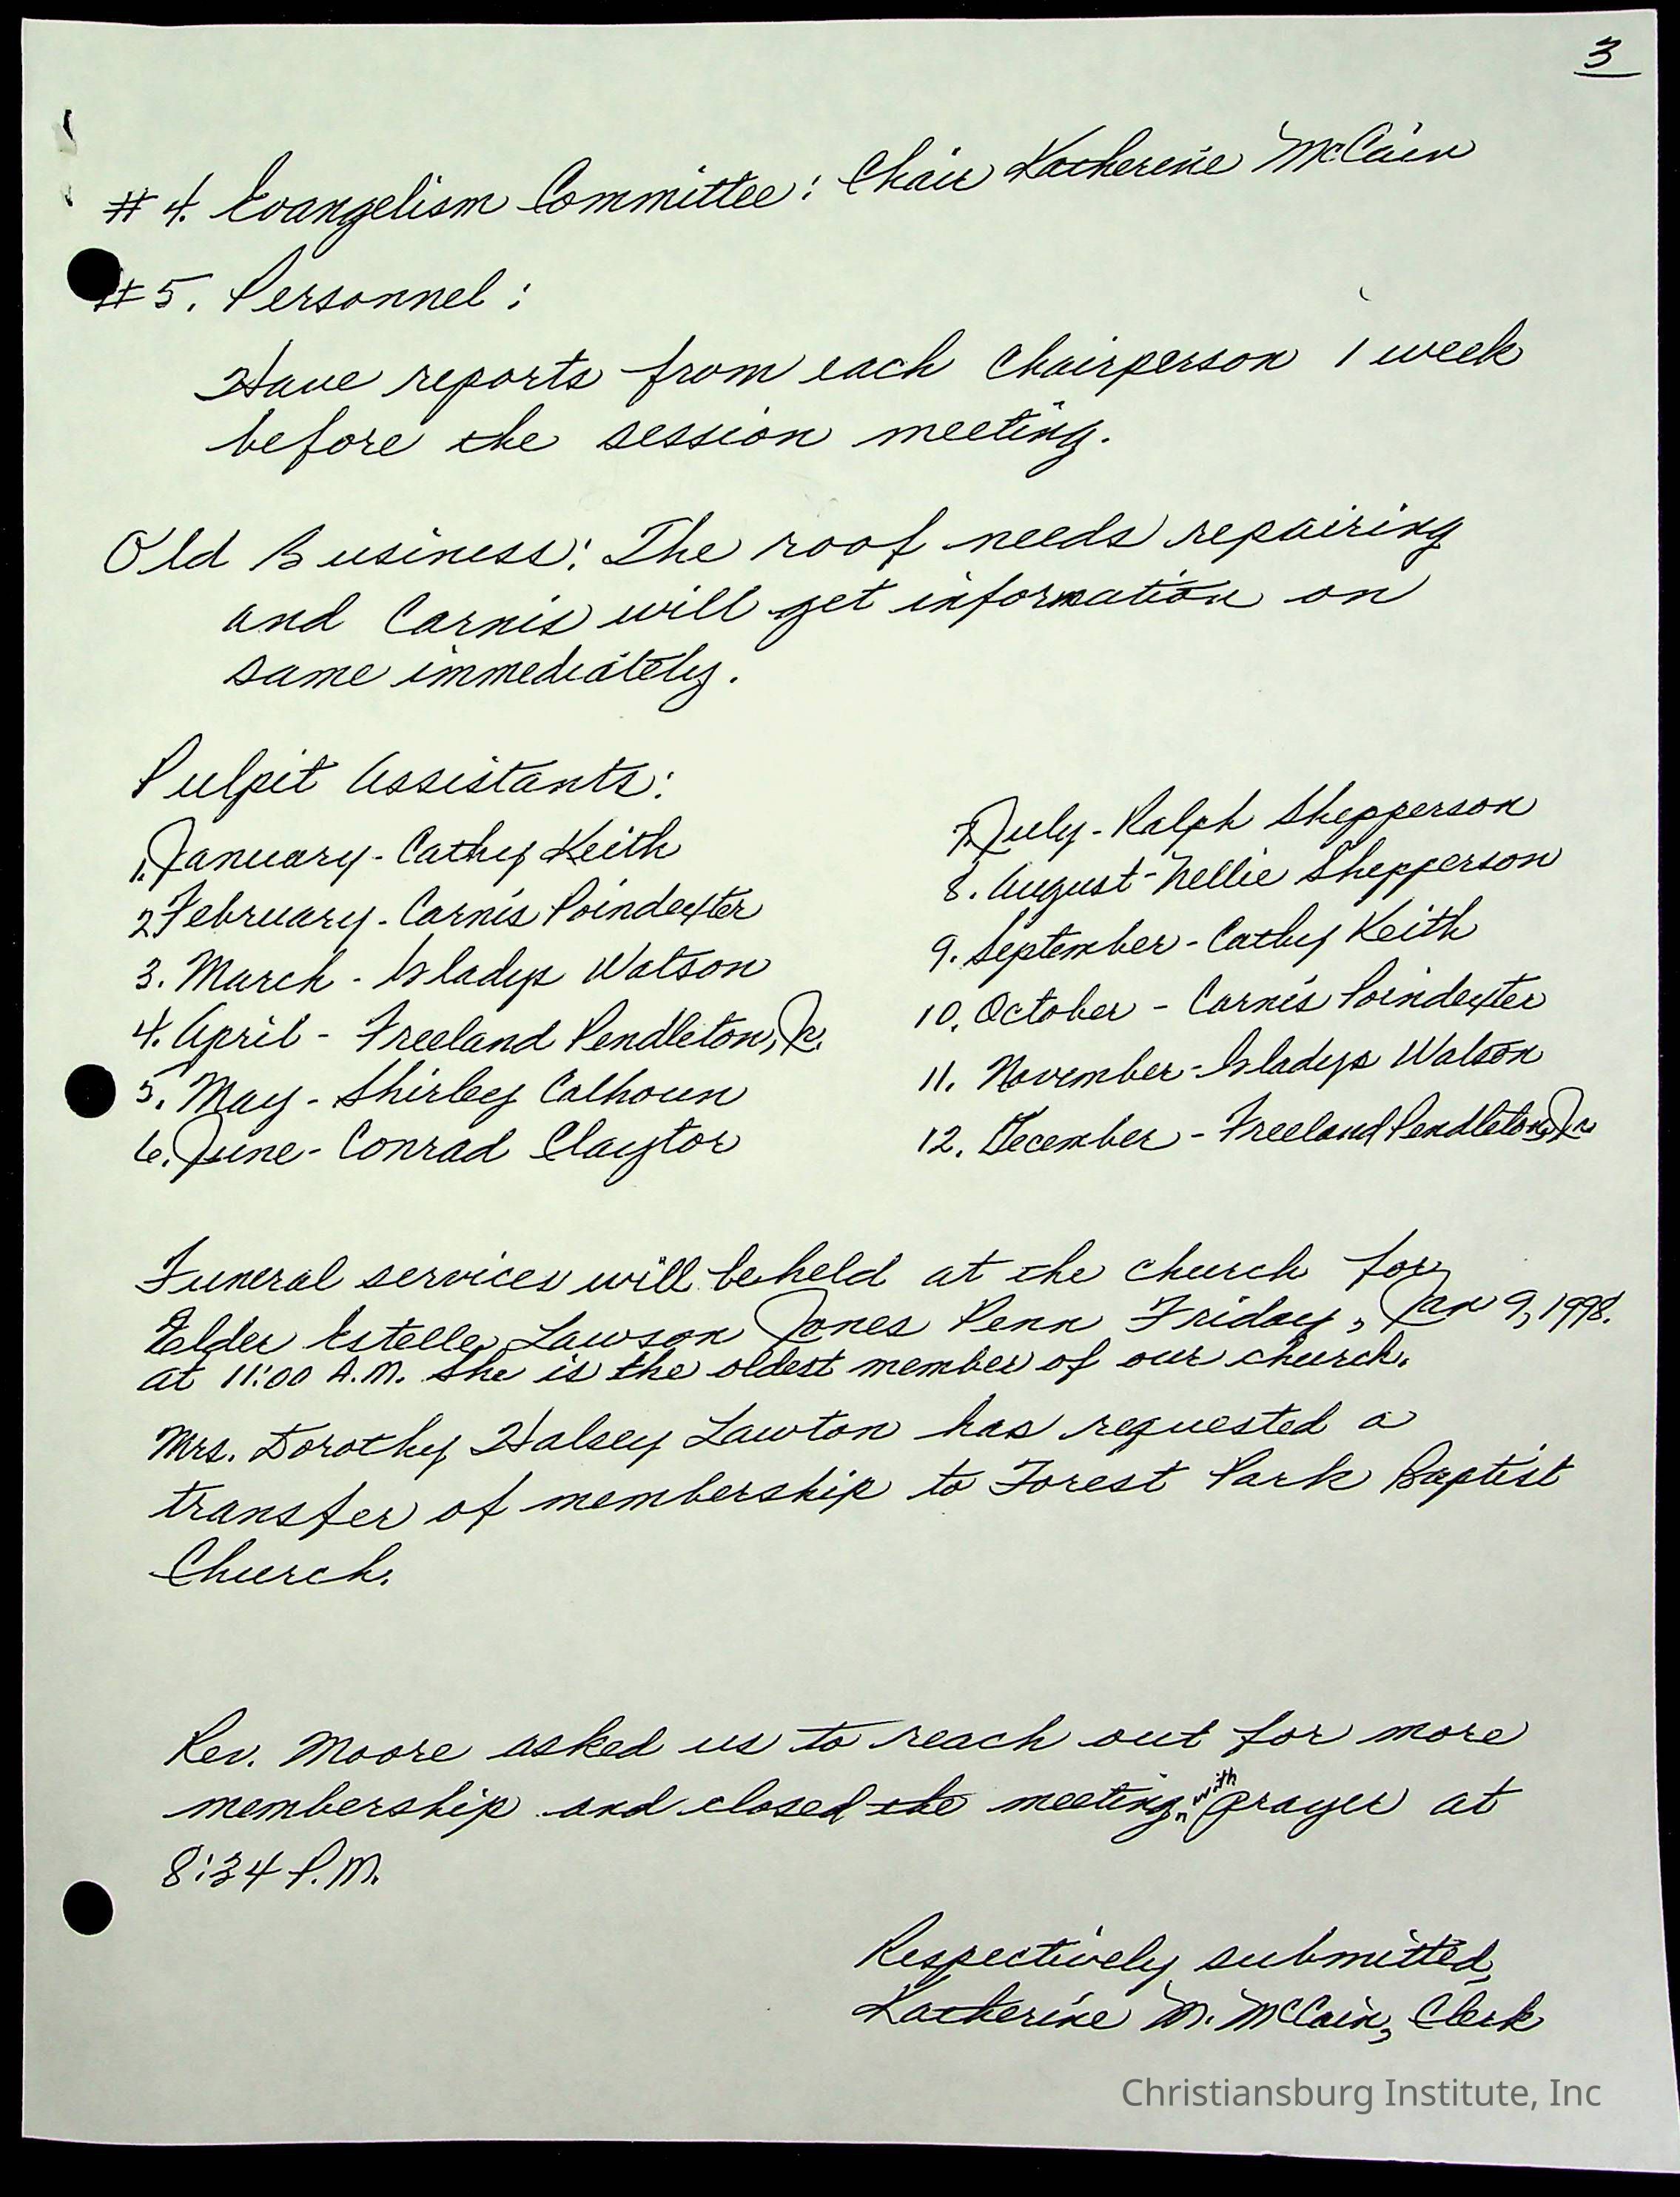 3
#4. Evangelism Committee: Chair Katherine McCain
#5. Personnel:
Have reports from each Chairperson 1 week
before the session meeting.
Old Business: The roof needs repairing
and Carnis will get information on
same immediately.
Pulpit Assistants:
1. January - Cathy Keith
2 February - Carnis Poindexter
3. March - Gladys Watson
4. April - Freeland Pendleton, Jr.
5. May - Shirley Calhoun
6. June - Conrad Claytor
7. July - Ralph Shepperson
8. August - Nellie Shepperson
9. September - Cathy Keith
10. October - Carnis Poindexter
11. November - Gladys Watson
12. December - Freeland Pendleton, Jr.
Funeral services will be held at the church for
Elder Estelle Lawson Jones Penn Friday, Jan 9, 1998.
at 11:00 A.M. She is the oldest member of our church.
Mrs. Dorothy Halsey Lawton has requested a
transfer of membership to Forest Park Baptist
Church.
Rev. Moore asked us to reach out for more
membership and closed the meeting with prayer at
8:34 P.M.
Respectively submitted,
Katherine M. McCain, Clerk
Christiansburg Institute, Inc